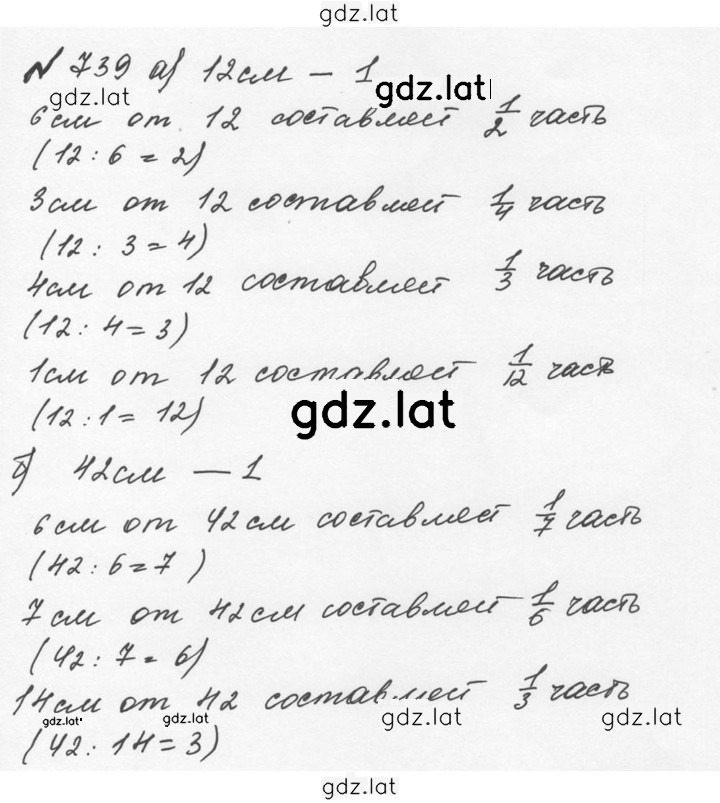 gdz.lat
№ 739 а) 12см – 1
gdz.lat gdz.lat
6см от 12 составляет 1/2 часть
(12 : 6 = 2)
3см от 12 составляет 1/4 часть
(12 : 3 = 4)
4см от 12 составляет 1/3 часть
(12 : 4 = 3)
1см от 12 составляет 1/12 часть
(12 : 1 = 12)
gdz.lat
б) 42см – 1
6см от 42см составляет 1/7 часть
(42 : 6 = 7)
7см от 42см составляет 1/6 часть
(42 : 7 = 6)
14см от 42 составляет 1/3 часть
gdz.lat gdz.lat gdz.lat gdz.lat
(42 : 14 = 3)
gdz.lat